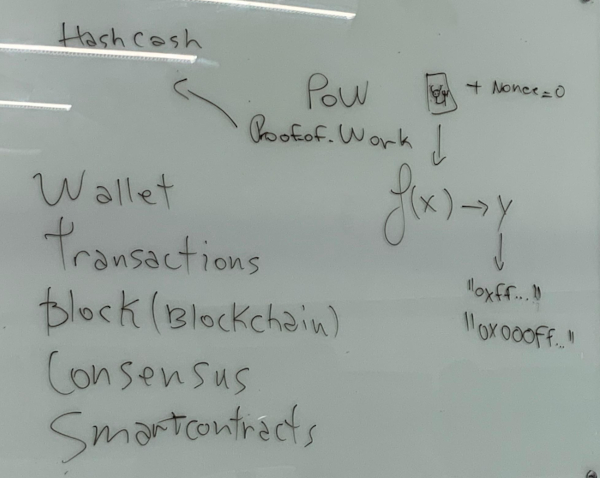 Hashcash
PoW
Proof of. Work
+ Nonce=0
f(x) → y
"0xff..."
"0x000ff..."
Wallet
Transactions
Block (Blockchain)
Consensus
Smartcontracts